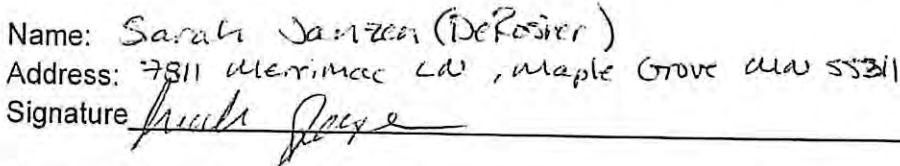 Name: Sarah Janzen (DeRosier)
Address: 7811 Merrimac LN, Maple Grove MN 55311
Signature